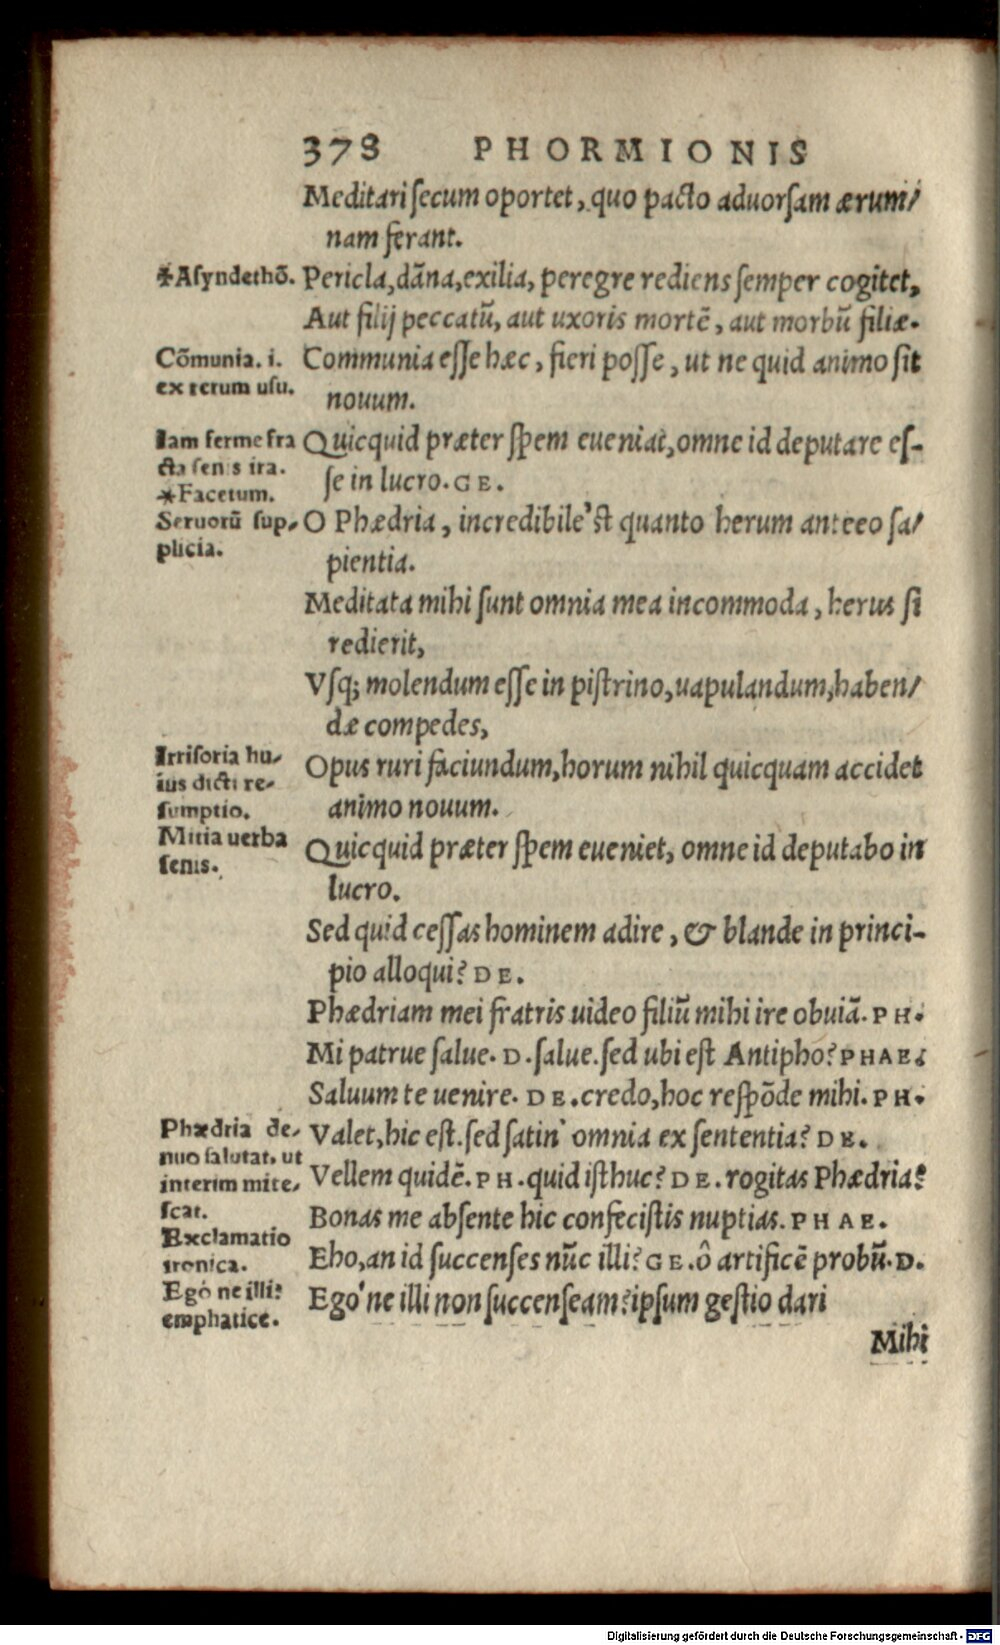 378 PHORMIONIS
Meditari secum oportet, quo pacto aduorsam ærum/
nam ferant.
*Asyndethō. Pericla, dāna, exilia, peregre rediens semper cogitet,
Aut filij peccatū, aut uxoris mortē, aut morbū filiæ.
Cōmunia. i. Communia esse hæc, fieri posse, ut ne quid animo sit
ex rerum usu.
nouum.
Iam ferme fra Quicquid præter spem eueniat, omne id deputare es-
cta senis ira.
se in lucro. GE.
*Facetum.
Seruorū sup- O Phædria, incredibile'st quanto herum anteeo sa/
plicia.
pientia.
Meditata mihi sunt omnia mea incommoda, herus si
redierit,
Vsq; molendum esse in pistrino, uapulandum, haben/
dæ compedes,
Irrisoria hu-
ius dicti re- Opus ruri faciundum, horum nihil quicquam accidet
sumptio.
animo nouum.
Mitia uerba
senis. Quicquid præter spem eueniet, omne id deputabo in
lucro.
Sed quid cessas hominem adire, & blande in princi-
pio alloqui? DE.
Phædriam mei fratris uideo filiū mihi ire obuiā. PH.
Mi patrue salue. D. salue. sed ubi est Antipho? PHAE.
Saluum te uenire. DE. credo, hoc respōde mihi. PH.
Phædria de- Valet, hic est. sed satin' omnia ex sententia? DE.
nuo salutat, ut
interim mite- Vellem quidē. PH. quid isthuc? DE. rogitas Phædria?
scat.
Bonas me absente hic confecistis nuptias. PHAE.
Exclamatio
ironica. Eho, an id succenses nūc illi? GE. ô artificē probū. D.
Ego ne illi? Ego'ne illi non succenseam? ipsum gestio dari
emphatice.
Mihi
Digitalisierung gefördert durch die Deutsche Forschungsgemeinschaft - DFG